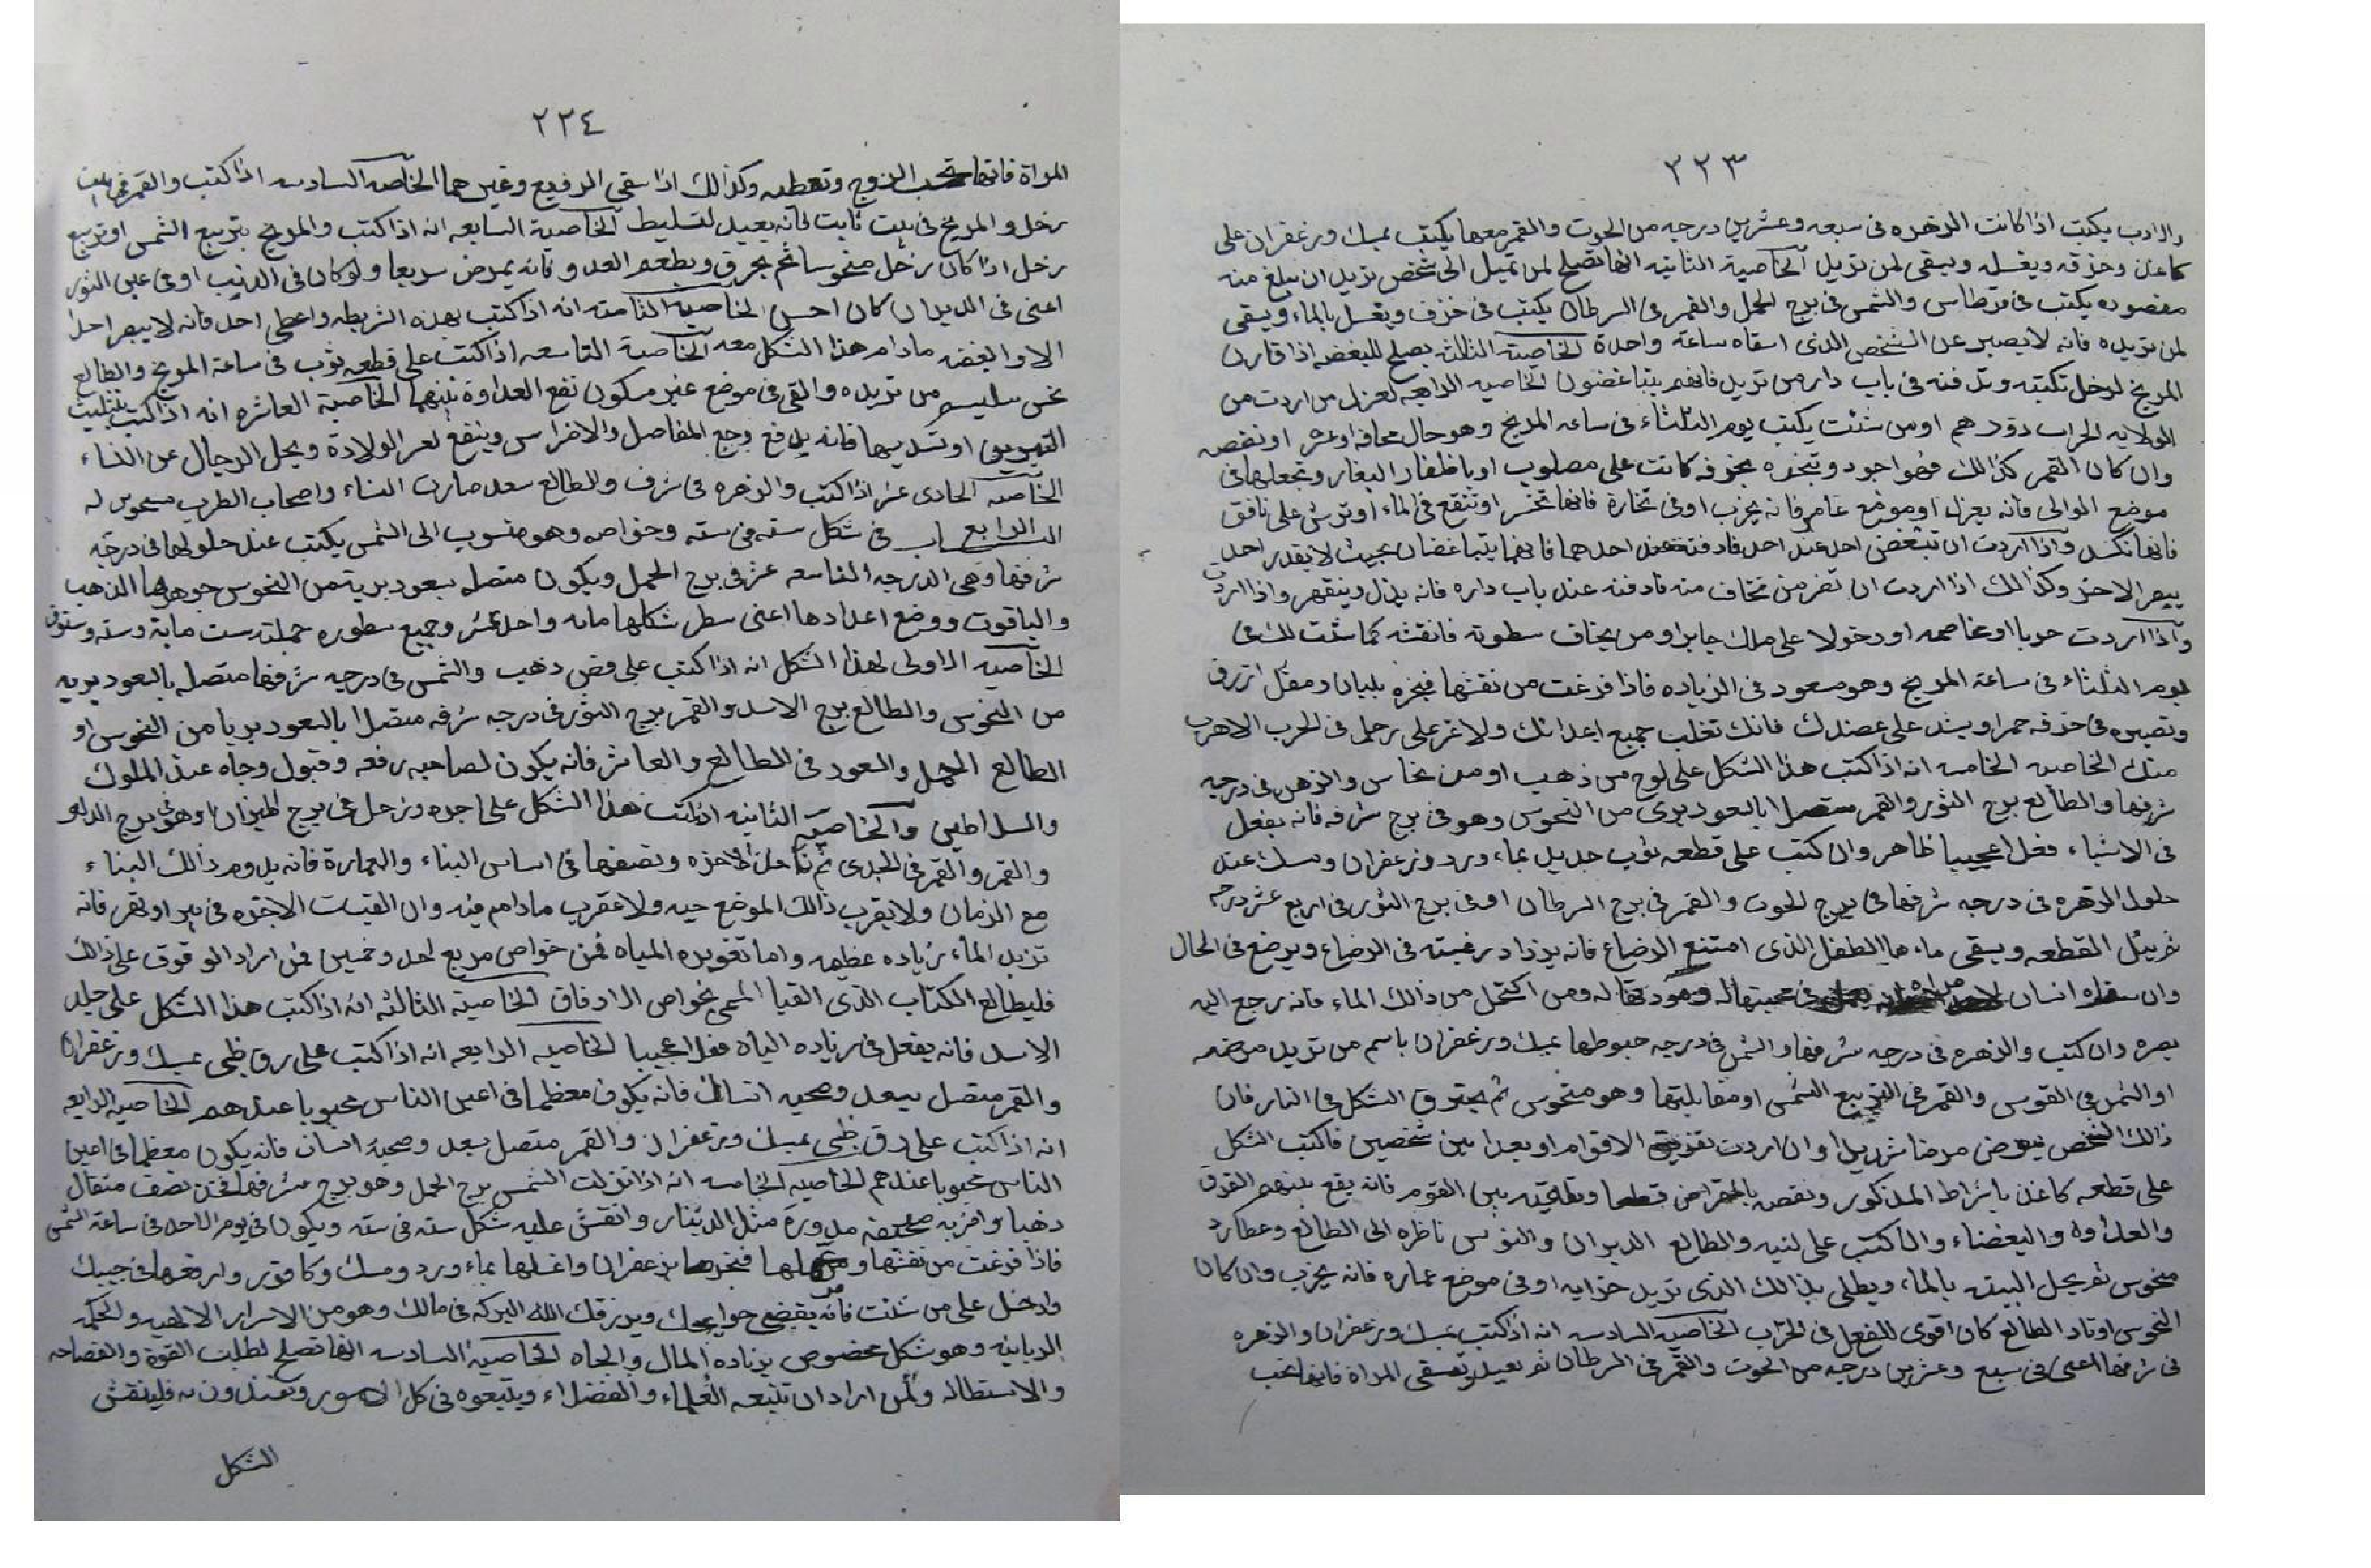 ٣٢٣
والادب يكتب اذا كانت الزهره فى سبعه وعشرين درجه من الحوت والقمر معها يكتب بمسك وزعفران على
كاغد وخرقه ويغسله ويسقى لمن تريد الخاصية الثانيه انها تصلح لمن تميل الى شخص تريد ان يبلغ منه
مقصوده يكتب فى قرطاس والشمس فى برج الحمل والقمر فى السرطان يكتب فى خزف ويغسل بالماء ويسقى
لمن تريده فانه لا يصبر عن الشخص الذى اسقاه ساعة واحدة الخاصية الثالثه يصلح للبغضه اذا قارن
المريخ لزحل تكتبه وتدفنه فى باب دار من تريد فانهم يتباغضون الخاصيه الرابعه لعزل من اردت من
الولايه لخراب دورهم اومن شئت يكتب يوم الثلثاء فى ساعه المريخ وهو حال اوعشر اونقصه
وان كان القمر كذالك فهو اجود وتبخره بخرقه كانت على مصلوب اوباظفار البغار وتجعلها فى
موضع الموالى فانه يعزل اوموضع عامر فانه يخرب اوفى تخارة فانها تخسر اوتنقع فى الماء اوترش على نافق
فانها تكسد واذا اردت ان تبغض احد عند احد فادفنه عند احدهما فانهما يتباغضان بحيث لا يقدر احد
يبصر الاخر وكذالك اذا اردت ان تضر من تخاف منه فادفنه عند باب داره فانه يذل وينقهر واذا اردت
واذا اردت حربا اومخاصمه اودخولا على ملك جابر اومن يخاف سطوته فانقشه كما شئت
يوم الثلثاء فى ساعة المريخ وهو مسعود فى الزياده فاذا فرغت من نقشها فبخره بلبان ومقل ازرق
وتصيره فى خرقه حمرا ويشد على عضدك فانك تغلب جميع اعدائك ولا على رجل فى الحرب الا هرب
منك الخاصيه الخامسه انه اذا كتب هذا الشكل على لوح من ذهب اومن نحاس والزهره فى درجه
شرفها والطالع برج الثور والقمر متصلا بالسعود برى من النحوس وهو فى برج شرفه فانه يفعل
فى الاشياء فعلا عجيبا ظاهر وان كتب على قطعه ثوب جديد بماء ورد وزعفران ومسك عند
حلول الزهره فى درجه شرفها فى برج الحوت والقمر فى برج السرطان اوفى برج الثور فى اربع عشر درجه
ثم يبل القطعه ويسقى ماءها الطفل الذى امتنع الرضاع فانه يزداد رغبته فى الرضاع ويرضع فى الحال
وان سقاه انسان فى محبتها له ومودتها له ومن اكتحل من ذالك الماء فانه يرجع اليه
بصره وان كتب والزهره فى درجه شرفها والشمس فى درجه هبوطها بمسك وزعفران باسم من تريد مرضه
اوالشمس فى القوس والقمر فى التربيع الشمس اومقابلتها وهو منحوس ثم يحترق الشكل فى النار فان
ذالك الشخص يمرض مرضا شديدا وان اردت تفريق الاقوام اوبعدا بين شخصين فاكتب الشكل
على قطعه كاغد بالشراط المذكور ونقصه بالمقراض قطعا وتلقيه بين القوم فانه يقع بينهم الفرق
والعداوه والبغضاء والكتب على لنيه والطالع الدبران والنوس ناظره الى الطالع وعطارد
منحوس ثم يحل البيت بالماء ويطلى بذالك الذى تريد خرابه اوفى موضع عماره فانه يخرب وان كان
النحوس اوتاد الطالع كان اقوى للفعل فى الخراب الخاصيه السادسه انه اذا كتب بمسك وزعفران والزهره
فى شرفها اعنى فى سبع وعشرين درجه من الحوت والقمر فى السرطان ثم تسقى المراة فانها تحب
٢٢٤
المراة فانها تحب الزوج وتعطيه وكذالك اذا سقى الرفيع وغيرهما الخاصه السادسه اذا كتب والقمر فى بيت
زحل والمريخ فى بيت ثابت فانه يعيد لتسليط الخاصية السابعه انه اذا كتب والمريخ بتربيع الشمس اوتربيع
زحل اذا كان زحل منحوسا ثم يحرق ويطعم العدو فانه يمرض سريعا ولو كان فى الذنب اوفى عين الثور
اعنى فى الدبران كان احسن الخاصيه الثامنه انه اذا كتب بهذه الشريطه واعطى احد فانه لا يبصر احدا
الا والبغضه مادام هذا الشكل معه الخاصية التاسعه اذا كتب على قطعه ثوب فى ساعة المريخ والطالع
نحس من تريده والقى فى موضع غير مسكون تقع العداوة بينهما الخاصية العاشره انه اذا كتب بتثليث
اوتسديسها فانه يدفع وجع المفاصل والاضراس وينفع لعسر الولادة ويحل الرجال عن النساء
الخاصيه الحادى عشر اذا كتب والزهره فى شرف والطالع سعد صارت النساء واصحاب الطرب له
الباب الرابع فى شكل سته فى سته وخواصه وهو منسوب الى الشمس يكتب عند حلولها فى درجه
شرفها وهى الدرجه التاسعه عشر فى برج الحمل ويكون متصله بسعود برية من النحوس جوهرها الذهب
والياقوت ووضع اعدادها اعنى سطر شكلها مائه واحد عشر وجميع سطوره جملته ست ماية وسته وستون
الخاصيه الاولى لهذا الشكل انه اذا كتب على فص ذهب والشمس فى درجه شرفها متصله بالسعود بريه
من النحوس والطالع برج الاسد والقمر برج الثور فى درجه شرفه متصلا بالسعود بريا من النحوس او
الطالع الحمل والسعود فى الطالع والعاشر فانه يكون لصاحبه رفعه وقبول وجاه عند الملوك
والسلاطين والخاصيه الثانيه اذا كتب هذا الشكل على اجره وزحل فى برج الميزان اوهو فى برج الدلو
والقمر والقمر فى الجدى ثم تأخذ الاجره وتضعها فى اساس البناء والعمارة فانه يدوم ذالك البناء
مع الزمان ولا يقرب ذالك الموضع حيه ولا عقرب مادام فيه وان القيت الاجره فى بير اونهر فانه
تزيد الماء زياده عظيمه واما تغويره المياه فمن خواص مربع احد وخمسين فمن اراد الوقوف على ذالك
فليطالع الكتاب الذى القيا المسمى بخواص الاوفاق الخاصية الثالثه انه اذا كتب هذا الشكل على جلد
الاسد فانه يفعل فى زياده الباه فعلا عجيبا الخاصيه الرابعه انه اذا كتب على رق ظبى بمسك وزعفران
والقمر متصل بسعد وصحبه انسان فانه يكون معظما فى اعين الناس محبوبا عندهم الخاصيه الرابعه
انه اذا كتب على رق ظبى بمسك وزعفران والقمر متصل بسعد وصحبه انسان فانه يكون معظما فى اعين
الناس محبوبا عندهم الخاصيه الخامسه انه اذا نزلت الشمس برج الحمل وهو برج شرفها فخذ نصف مثقال
ذهبا واضربه صحيفه مدورة مثل الدينار وانقش عليه شكل سته فى سته ويكون فى يوم الاحد فى ساعة الشمس
فاذا فرغت من نقشها فبخرها بزعفران واغسلها بماء ورد ومسك وكافور وارفعها فى جيبك
وادخل على من شئت فانه يقضى حوايجك ويرزقك الله البركه فى مالك وهو من الاسرار الالهيه والحكمه
الربانيه وهو شكل مخصوص بزياده المال والجاه الخاصية السادسه انها تصلح لطلب القوة والفصاحه
والاستطاله ولمن اراد ان تتبعه العلماء والفضلاء ويتبعوه فى كل الامور ويقتدون به فلينقش
الشكل